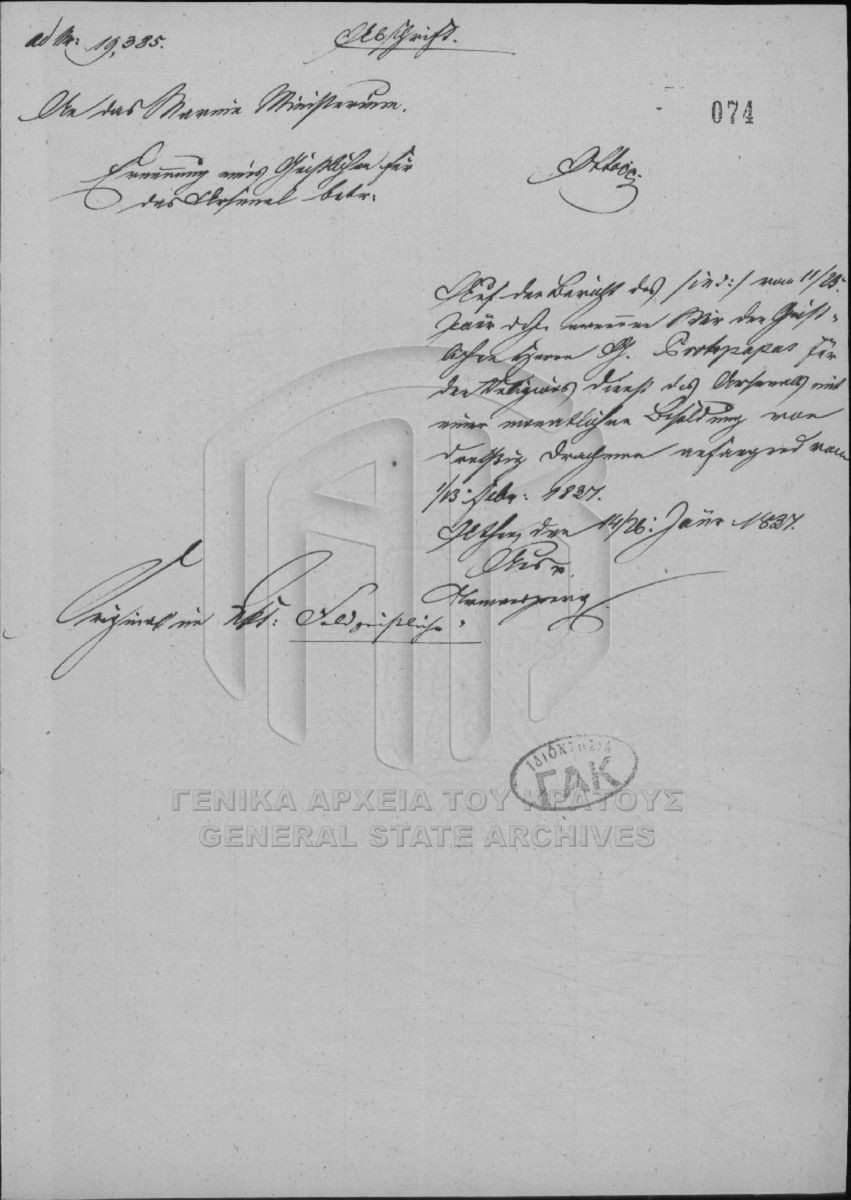 ad Nr: 19,385.
Abschrift.
An das Marine Ministerium.
074
Ernennung eines Geistlichen für
das Arsenal betr:
Otto
Auf den Bericht des vom 11/23.
Jänr ernennen Wir den Geist-
lichen Herrn G. Protopapas für
den Religions dienst des Arsenals mit
einer monatlichen Besoldung von
dreißig Drachmen anfangend vom
1/13. Febr: 1837.
Athen den 14/26: Jänr 1837.
Armansperg
Original im Akt: Feldgeistliche
ΙΔΙΟΚΤΗΣΙΑ
ΓΑΚ
ΓΕΝΙΚΑ ΑΡΧΕΙΑ ΤΟΥ ΚΡΑΤΟΥΣ
GENERAL STATE ARCHIVES